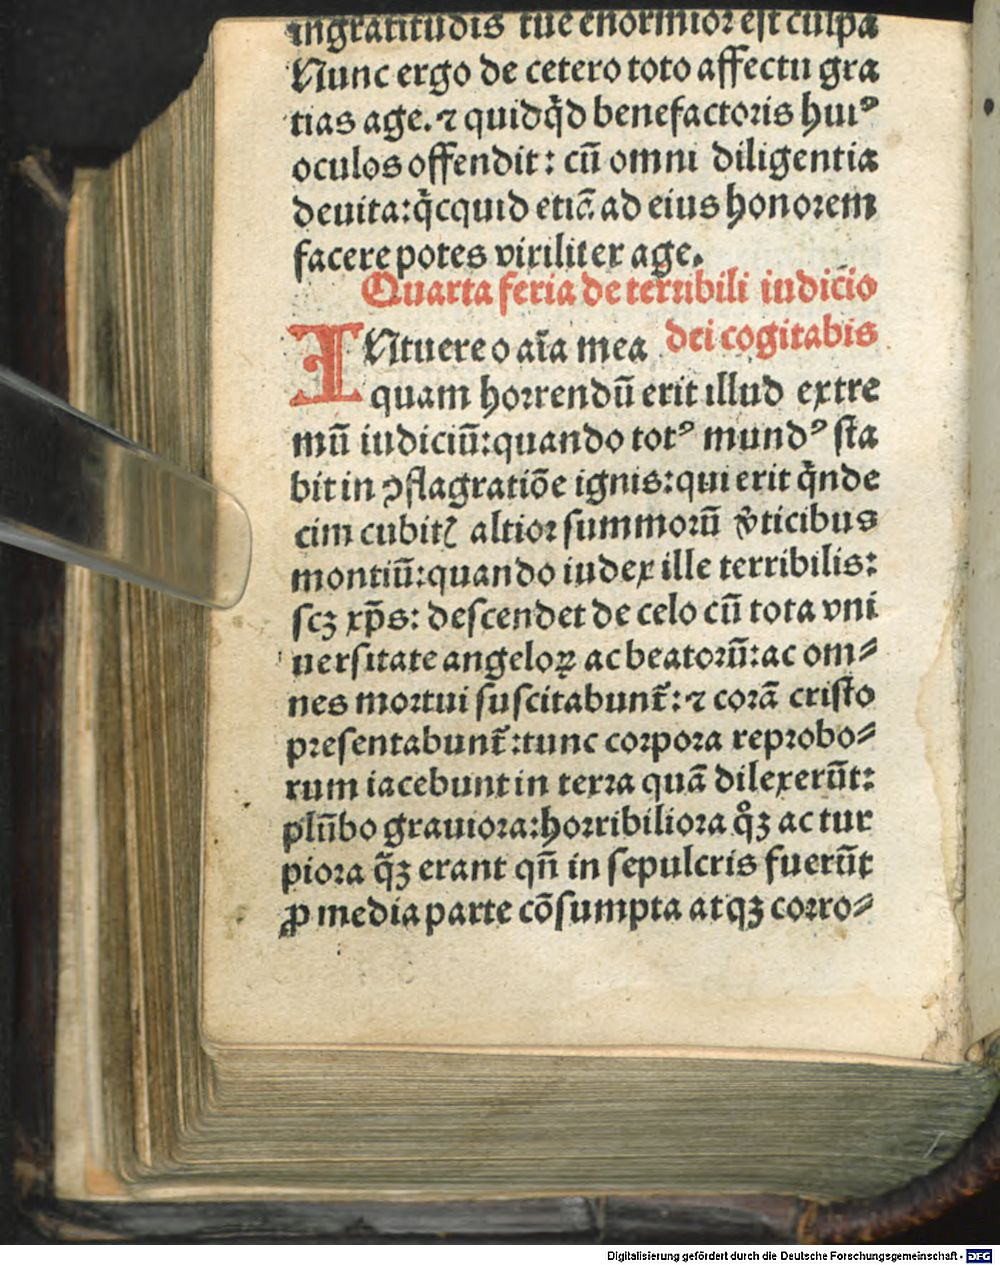 ingratitudis tue enormior est culpa
Nunc ergo de cetero toto affectu gra
tias age. ⁊ quidq̇d benefactoris huiꝰ
oculos offendit: cū omni diligentia
deuita: q̇cquid etiā ad eius honorem
facere potes viriliter age.
Quarta feria de terribili iudicio
dei cogitabis
INtuere o aīa mea
quam horrendū erit illud extre
mū iudiciū: quando totꝰ mundꝰ sta
bit in ꝯflagratiōe ignis: qui erit q̇nde
cim cubitꝭ altior summorū v̾ticibus
montiū: quando iudex ille terribilis:
scꝫ xp̄s: descendet de celo cū tota vni
uersitate angeloꝝ ac beatorū: ac om⸗
nes mortui suscitabunt᷑: ⁊ corā cristo
presentabunt᷑: tunc corpora reprobo⸗
rum iacebunt in terra quā dilexerūt:
plūbo grauiora: horribiliora qͦꝫ ac tur
piora q̄ꝫ erant qn̄ in sepulcris fuerūt
ꝓ media parte cōsumpta atqꝫ corro⸗
Digitalisierung gefördert durch die Deutsche Forschungsgemeinschaft - DFG